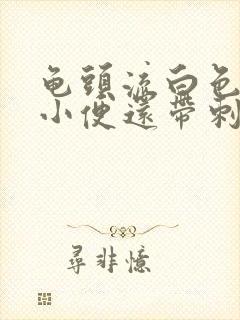 龟頭流白色
小便還帶刺
尋非憶